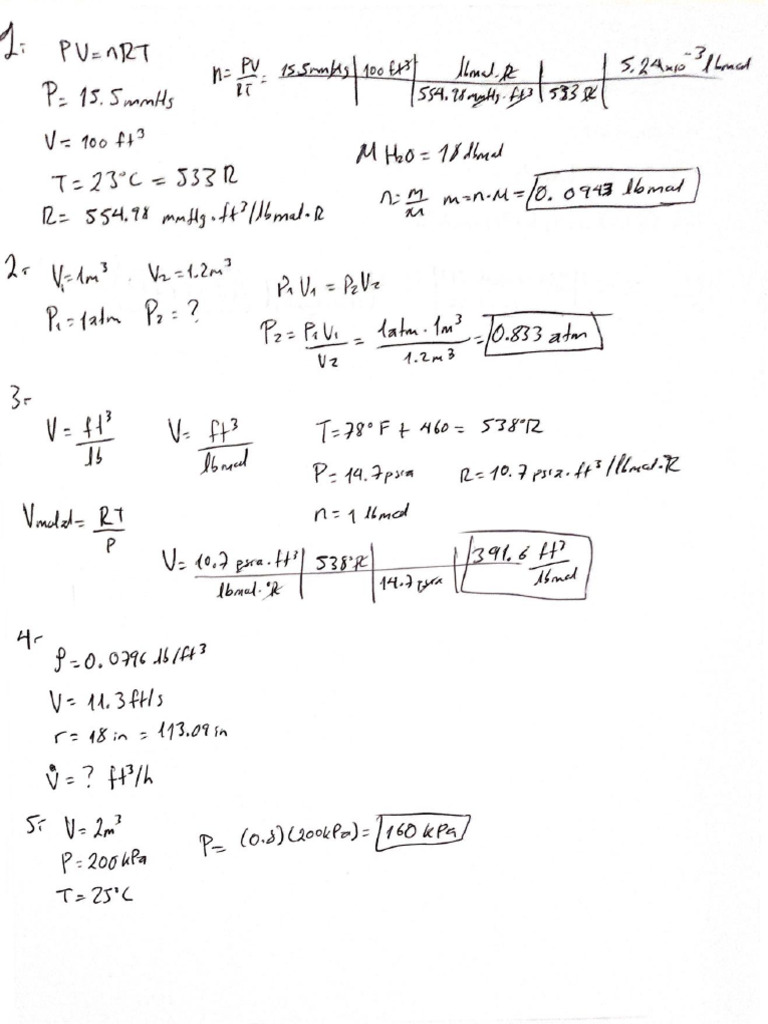 1.- PV=nRT
P= 15.5mmHg
V= 100 ft³
T= 23°C = 533 R
R= 554.98 mmHg.ft³/lbmol.R
n= PV/RT = 15.5mmHg | 100 ft³ | lbmol.R / 554.98 mmHg.ft³ | 533 R | 5.24x10⁻³ lbmol
M H2O = 18 lbmol
n= m/M m=n.M = 0.0943 lbmol
2.- V₁=1m³ V2=1.2m³
P₁=1atm P2=?
P1 V1 = P2V2
P2 = P1V1/V2 = 1atm . 1m³/1.2m³ = 0.833 atm
3-
V= ft³/lb V= ft³/lbmol
T=78°F + 460 = 538°R
P= 14.7psia R=10.7 psia.ft³/lbmol.°R
n= 1 lbmol
Vmolal= RT/P
V= 10.7 psia.ft³/lbmol.°R | 538°R | 14.7 psia | 391.6 ft³/lbmol
4-
ρ=0.0796 lb/ft³
V= 11.3ft/s
r= 18 in = 113.09 in
V̇=? ft³/h
5.- V=2m³
P=200kPa
T=25°C
P= (0.8)(200kPa)= 160 kPa